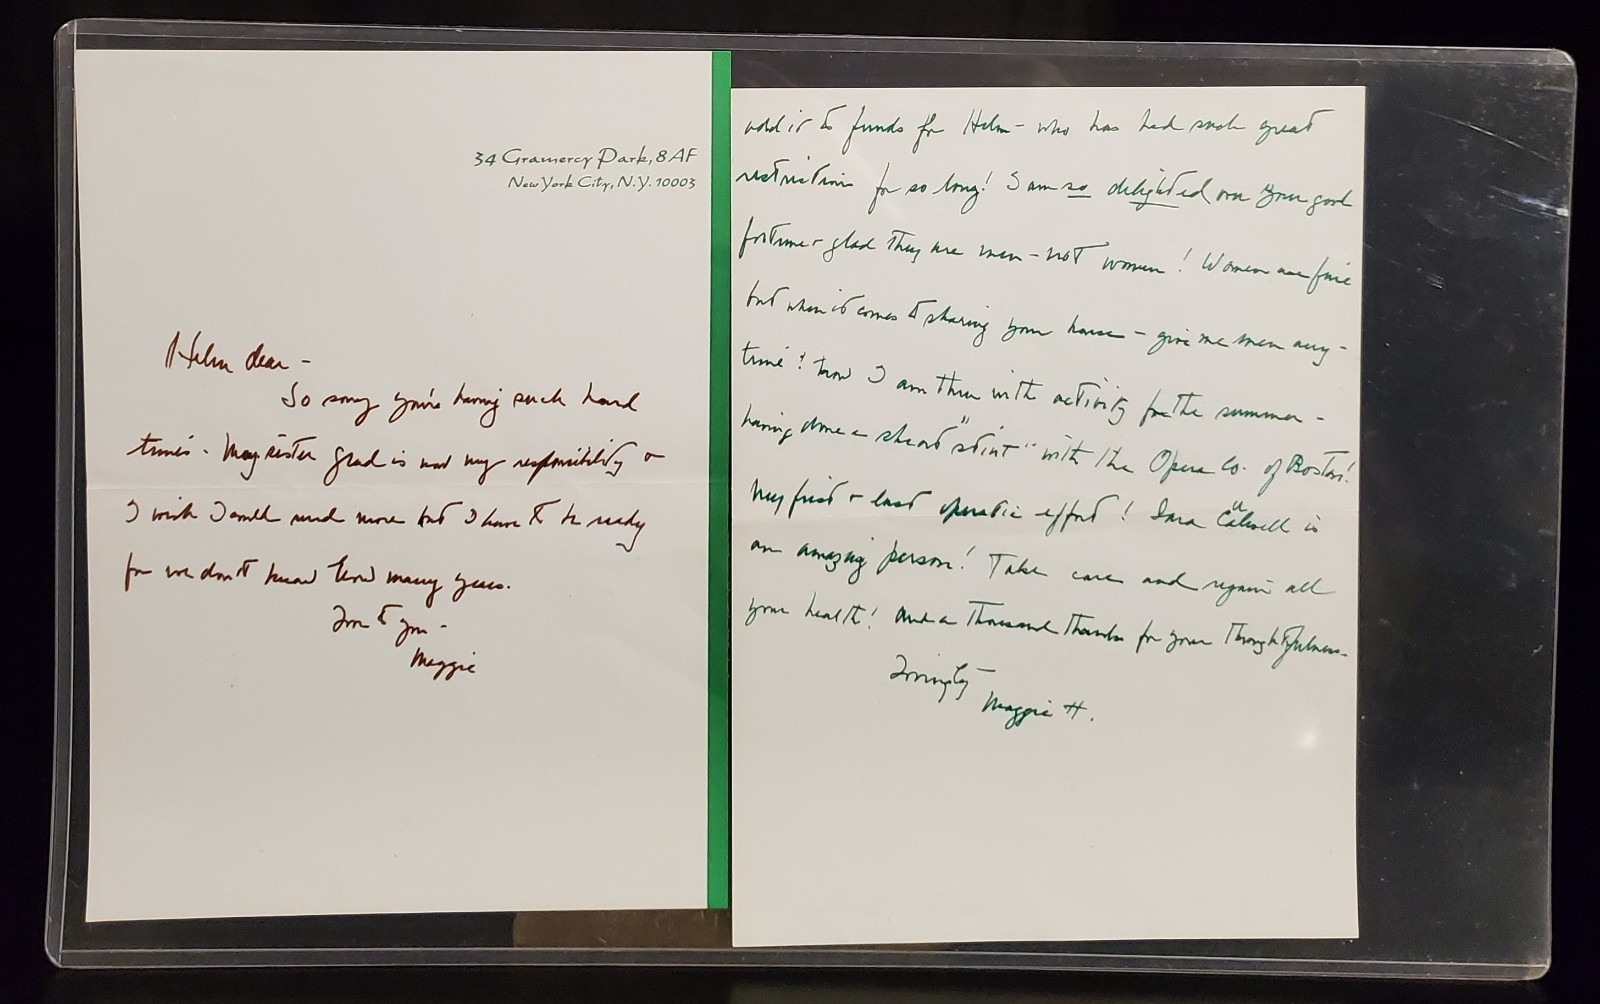 34 Gramercy Park, 8AF
New York City, N.Y. 10003
Helen dear –
So sorry you're having such hard
times – My sister Grad is now my responsibility &
I wish I could send more but I have to be ready
for we don't know how many years.
Love to you –
Maggie
add it to funds for Helen – who has had such great
restriction for so long! I am so delighted over your good
fortune & glad they are men – not women! Women are fine
but when it comes to sharing your house – give me men any-
time! Now I am thru with activity for the summer –
having done a short "stint" with the Opera Co. of Boston!
My first & last operatic effort! Sara Caldwell is
an amazing person! Take care and regain all
your health! And a thousand thanks for your thoughtfulness –
Lovingly –
Maggie H.